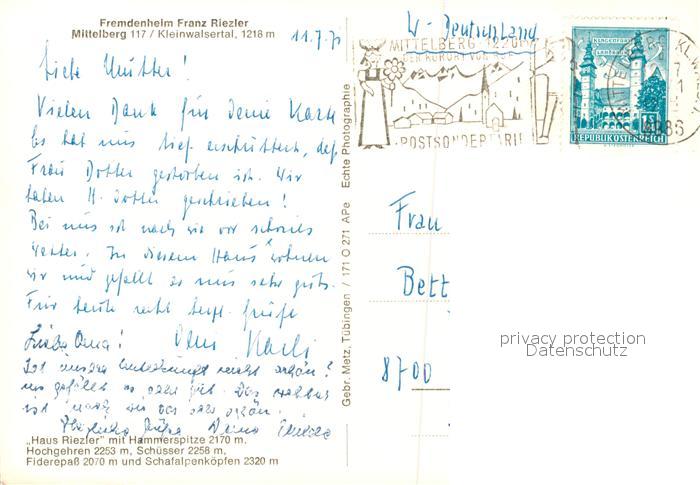 Fremdenheim Franz Riezler
Mittelberg 117 / Kleinwalsertal, 1218 m
11.7.7
Liebe Mutter!
Vielen Dank für Deine Karte
Es hat uns tief erschüttert, daß
Frau Dotter gestorben ist. Wir
haben H. Dotter geschrieben!
Bei uns ist nach wie vor schönes
Wetter. In diesem Haus wohnen
wir und gefällt es uns sehr gut.
Für heute recht herzl. Grüße
Dein Karli
Liebe Oma!
Ist unsere nicht schön?
uns gefällt es sehr gut. Das Wetter
ist nach wie vor sehr schön.
Herzliche Grüße Deine
„Haus Riezler" mit Hammerspitze 2170 m,
Hochgehren 2253 m, Schüsser 2258 m,
Fiderepaß 2070 m und Schafalpenköpfen 2320 m
Gebr. Metz, Tübingen / 171 O 271 APe Echte Photographie
W-Deutschland
MITTELBERG 1220m
DER KURORT VON
POSTSONDERTARIF
KLAGENFURT
LANDHAUS
REPUBLIK ÖSTERREICH
Frau
Bett
8700
privacy protection
Datenschutz